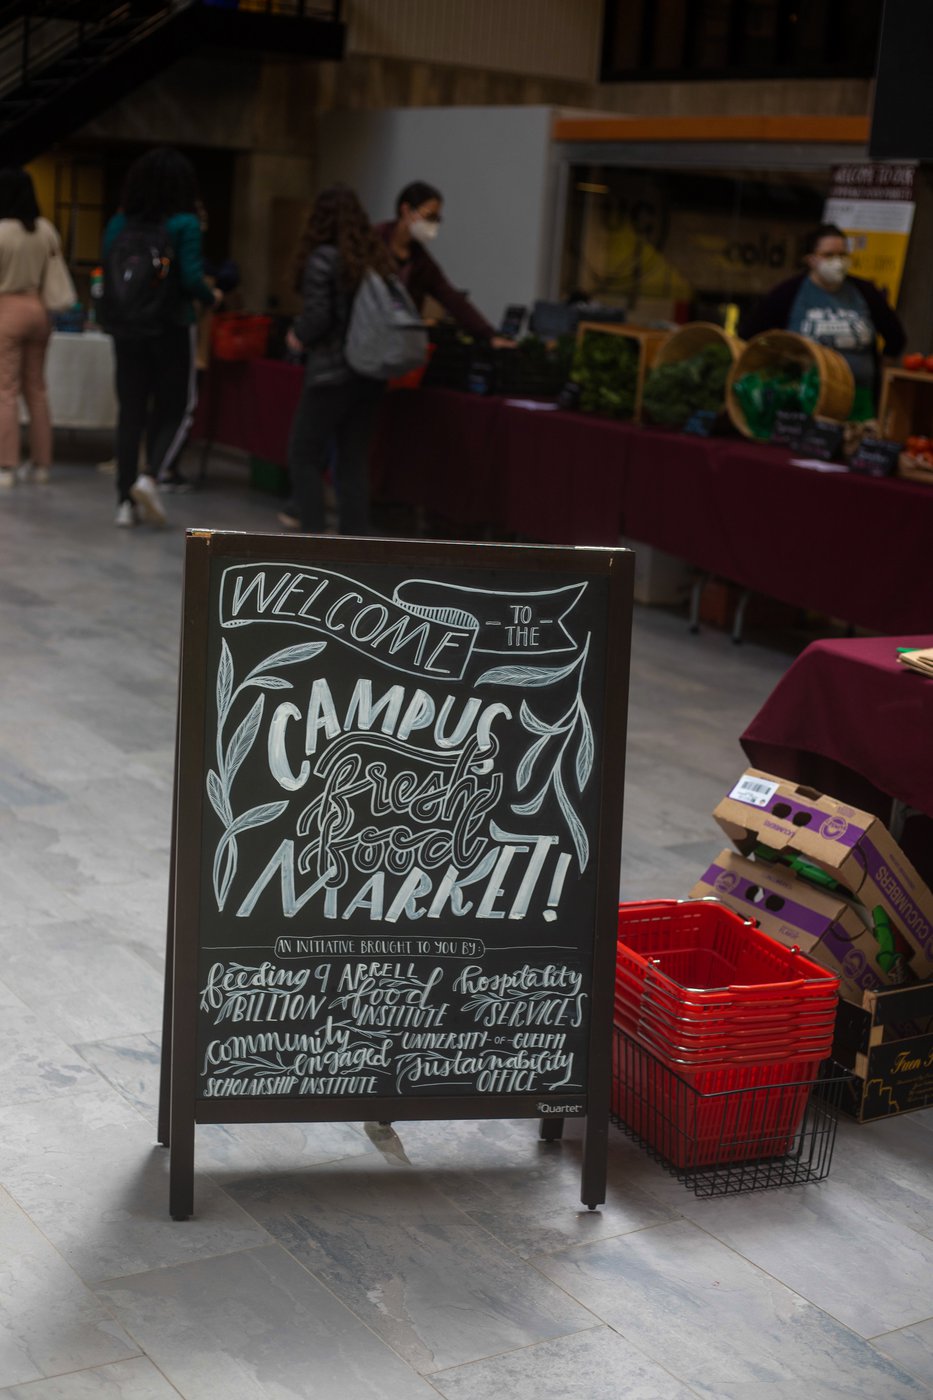 WELCOME
TO
THE
CAMPUS
fresh
food
MARKET!
AN INITIATIVE BROUGHT TO YOU BY:
feeding 9
BILLION
ARRELL
food
INSTITUTE
hospitality
SERVICES
community
engaged
SCHOLARSHIP INSTITUTE
UNIVERSITY-OF-GUELPH
sustainability
OFFICE
Quartet
CUCUMBERS
CUCUMBERS
WELCOME TO OUR
cold